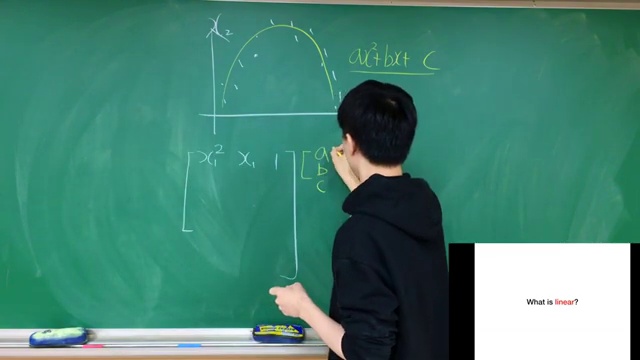 x₂
ax²+bx+ c
x₁² x₁ 1
a
b
c
What is linear?